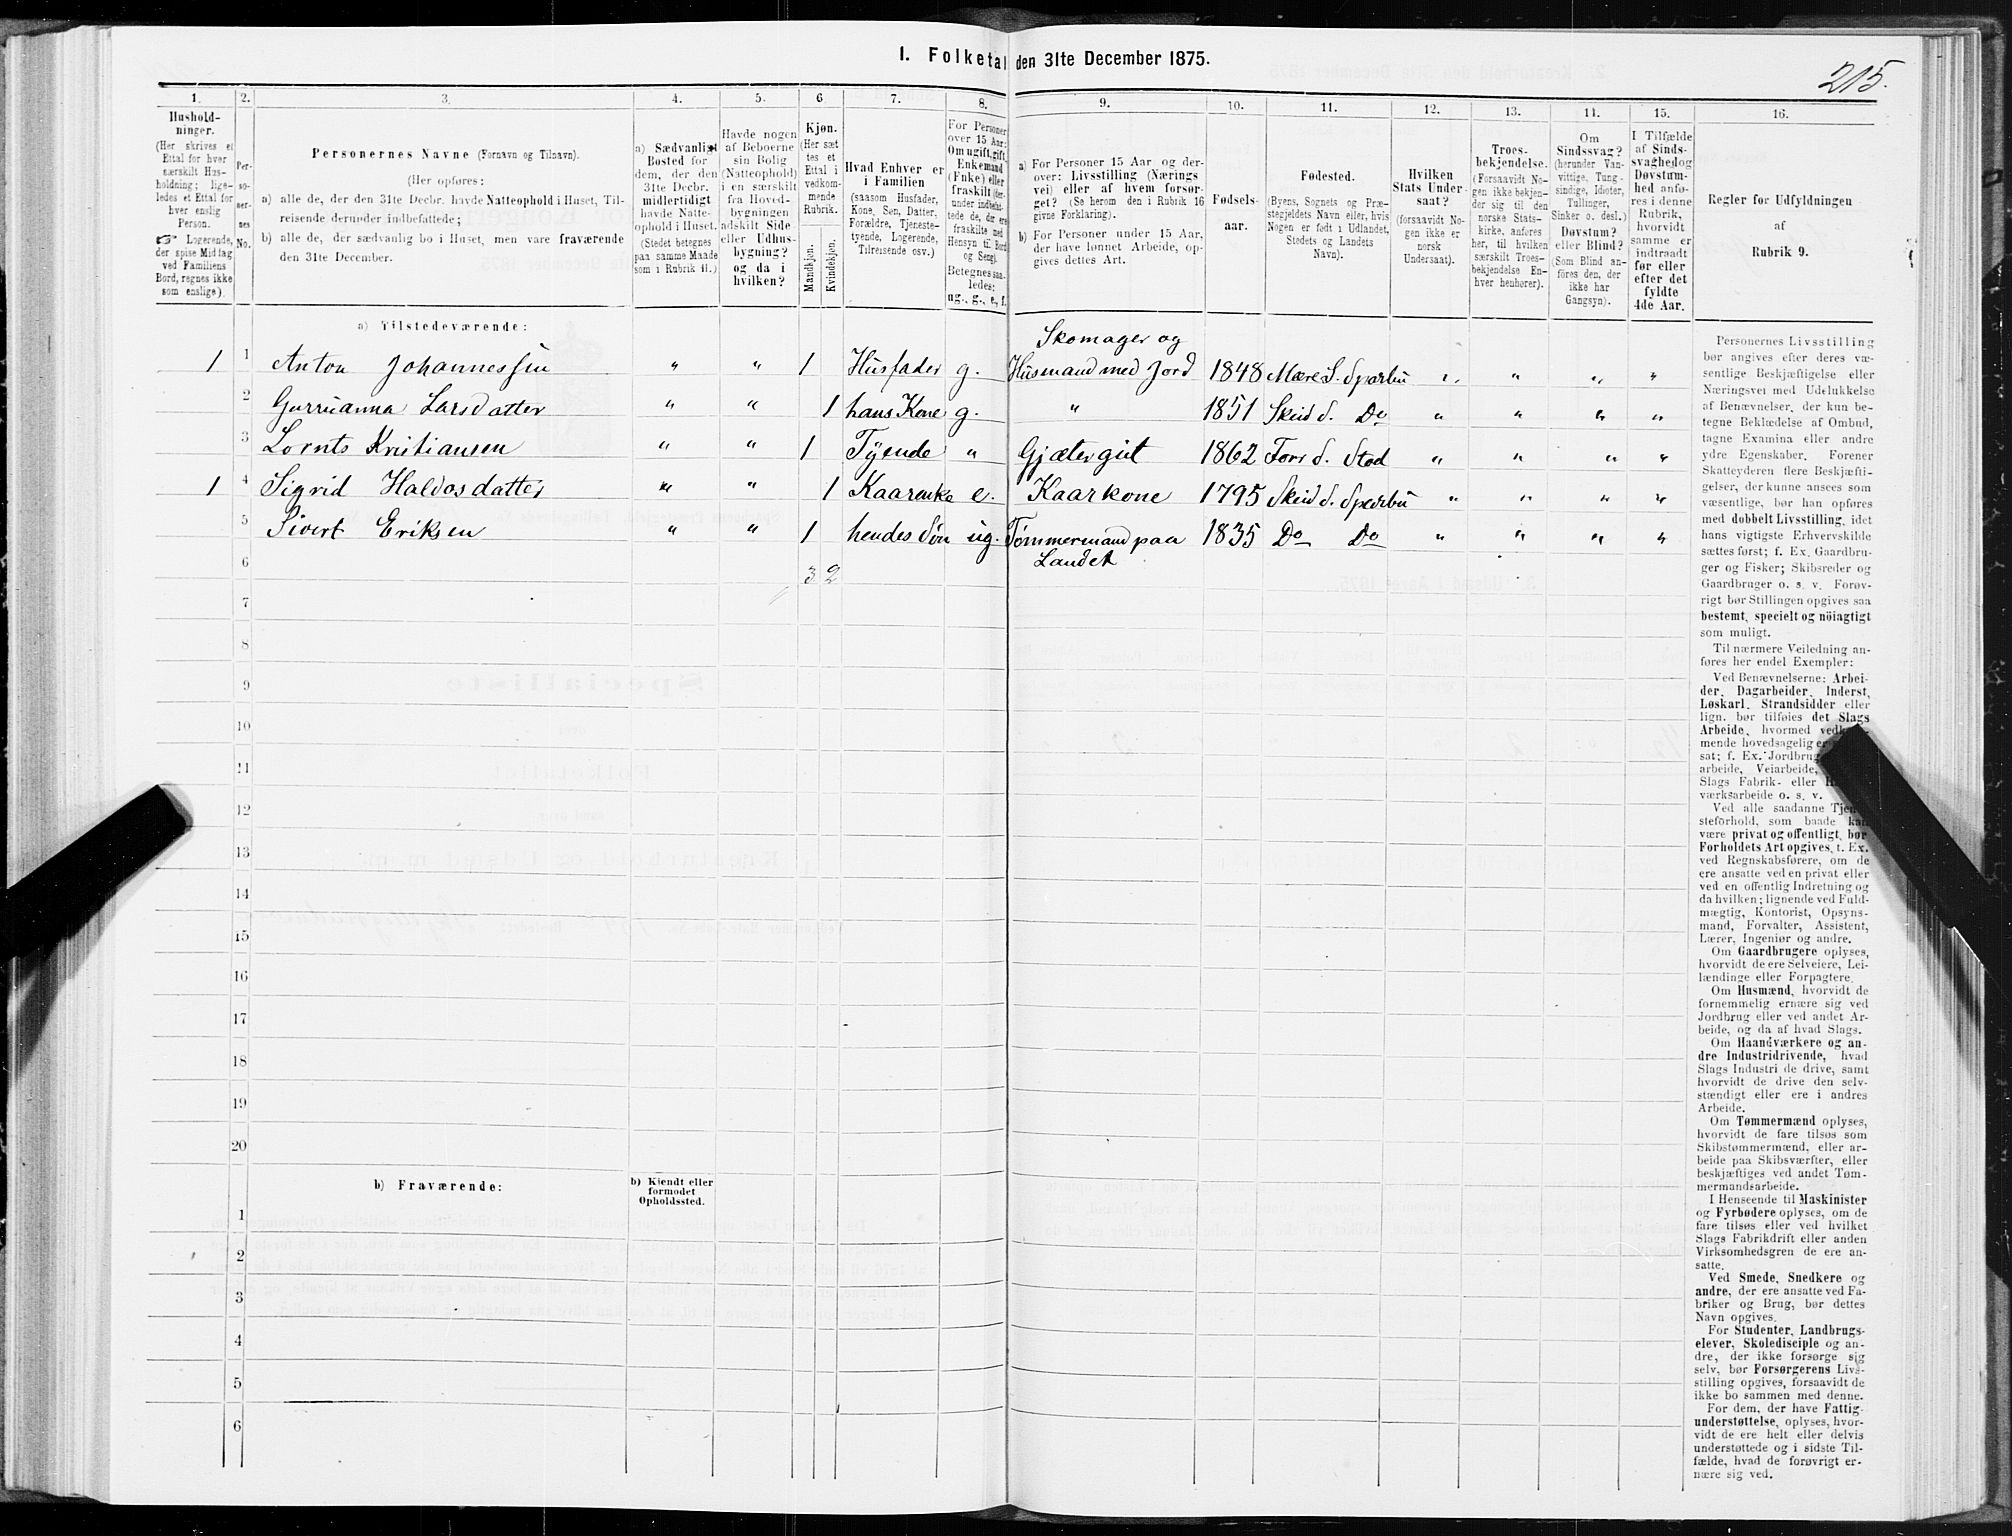 1. Folketal den 31te December 1875.
215.
1. 2. 3. 4. 5. 6 7. 8. 9. 10. 11. 12. 13. 14. 15. 16.
Hushold-
ninger.
(Her skrives et
Ettal for hver
særskilt Hus-
holdning; lige-
ledes et Ettal for
hver enslig
Person.
☞ Logerende,
der spise Middag
ved Familiens
Bord, regnes ikke
som enslige).
Per-
so-
ner-
nes
No.
Personernes Navne (Fornavn og Tilnavn).
(Her opføres:
a) alle de, der den 31te Decbr. havde Natteophold i Huset, Til-
reisende derunder indbefattede;
b) alle de, der sædvanlig bo i Huset, men vare fraværende
den 31te December.
a) Sædvanligt
Bosted for
dem, der den
31te Decbr.
midlertidigt
havde Natte-
ophold i Huset.
(Stedet betegnes
paa samme Maade
som i Rubrik 11.)
Havde nogen
af Beboerne
sin Bolig
(Natteophold)
i en særskilt
fra Hoved-
bygningen
adskilt Side-
eller Udhus-
bygning?
og da i
hvilken?
Kjøn.
(Her sæt-
tes et
Ettal i
vedkom-
mende
Rubrik.
Mandkjøn.
Kvindekjøn.
Hvad Enhver er
i Familien
(saasom Husfader,
Kone, Søn, Datter,
Forældre, Tjeneste-
tyende, Logerende,
Tilreisende osv.)
For Personer
over 15 Aar:
Om ugift, gift,
Enkemand
(Enke) eller
fraskilt (her-
under indbefat-
tede de, der ere
fraskilte med
Hensyn til Bord
og Seng).
Betegnes saa-
ledes:
ug., g., e., f.
a) For Personer 15 Aar og der-
over: Livsstilling (Nærings-
vei) eller af hvem forsør-
get? (Se herom den i Rubrik 16
givne Forklaring).
b) For Personer under 15 Aar,
der have lønnet Arbeide, op-
gives dettes Art.
Fødsels-
aar.
Fødested.
(Byens, Sognets og Præ-
stegjeldets Navn eller, hvis
Nogen er født i Udlandet,
Stedets og Landets
Navn).
Hvilken
Stats Under-
saat?
(forsaavidt No-
gen ikke er
norsk
Undersaat).
Troes-
bekjendelse.
(Forsaavidt No-
gen ikke bekjen-
der sig til den
norske Stats-
kirke, anføres
her, til hvilken
særskilt Troes-
bekjendelse En-
hver henhører).
Om
Sindssvag?
(herunder Van-
vittige, Tung-
sindige, Idioter,
Tullinger,
Sinker o. desl.)
Døvstum?
eller Blind?
(Som Blind an-
føres den, der
ikke har
Gangsyn).
I Tilfælde
af Sinds-
svaghed og
Døvstum-
hed anfø-
res i denne
Rubrik,
hvorvidt
samme er
indtraadt
før eller
efter det
fyldte
4de Aar.
Regler for Udfyldningen
af
Rubrik 9.
a) Tilstedeværende:
Skomager og
1 1 Anton Johannessen " " 1 Husfader g. Husmand med Jord 1848 Mære S. Sparbu " " " "
2 Gurruanna Larsdatter " " 1 hans Kone g. " 1851 Skeid S. Do " " " "
3 Lornts Kristiansen " " 1 Tyende " Gjætergut 1862 For S. Stod " " " "
1 4 Sigrid Haldosdatter " " 1 Kaarenke e. Kaarkone 1795 Skeid S. Sparbu " " " "
5 Sivert Eriksen " " 1 hendes Søn ug. Tømmermand paa 1835 Do Do " " " "
6 3 2 Landet
7
8
9
10
11
12
13
14
15
16
17
18
19
20
b) Fraværende:
b) Kjendt eller
formodet
Opholdssted.
1
2
3
4
5
6
Personernes Livsstilling
bør angives efter deres væ-
sentlige Beskjæftigelse eller
Næringsvei med Udelukkelse
af Benævnelser, der kun be-
tegne Beklædelse af Ombud,
tagne Examina eller andre
ydre Egenskaber. Forener
Skatteyderen flere Beskjæfti-
gelser, der kunne ansees som
væsentlige, bør han opføres
med dobbelt Livsstilling, idet
hans vigtigste Erhvervskilde
sættes først; f. Ex. Gaardbru-
ger og Fisker; Skibsreder og
Gaardbruger o. s. v. Forøv-
rigt bør Stillingen opgives saa
bestemt, specielt og nöiagtigt
som muligt.
Til nærmere Veiledning an-
føres her endel Exempler:
Ved Benævnelserne: Arbei-
der, Dagarbeider, Inderst,
Løskarl, Strandsidder eller
lign. bør tilføies det Slags
Arbeide, hvormed vedkom-
mende hovedsagelig er
sat; f. Ex. Jordbrug
arbeide, Veiarbeide,
Slags Fabrik- eller
værksarbeide o. s. v.
Ved alle saadanne Tjene-
steforhold, som baade kan
være privat og offentligt, bør
Forholdets Art opgives, t. Ex.
ved Regnskabsførere, om de
ere ansatte ved en privat eller
ved en offentlig Indretning og
da hvilken; lignende ved Fuld-
mægtig, Kontorist, Opsyns-
mand, Forvalter, Assistent,
Lærer, Ingeniør og andre.
Om Gaardbrugere oplyses,
hvorvidt de ere Selveiere, Lei-
lændinge eller Forpagtere.
Om Husmænd, hvorvidt de
fornemmelig ernære sig ved
Jordbrug eller ved andet Ar-
beide, og da af hvad Slags.
Om Haandværkere og an-
dre Industridrivende, hvad
Slags Industri de drive, samt
hvorvidt de drive den selv-
stændigt eller ere i andres
Arbeide.
Om Tømmermænd oplyses,
hvorvidt de fare tilsøs som
Skibstømmermænd, eller ar-
beide paa Skibsværfter, eller
beskjæftiges ved andet Tøm-
mermandsarbeide.
I Henseende til Maskinister
og Fyrbødere oplyses, om de
fare tilsøs eller ved hvilket
Slags Fabrikdrift eller anden
Virksomhedsgren de ere an-
satte.
Ved Smede, Snedkere og
andre, der ere ansatte ved Fa-
briker og Brug, bør dettes
Navn opgives.
For Studenter, Landbrugs-
elever, Skoledisciple og an-
dre, der ikke forsørge sig
selv, bør Forsørgerens Livs-
stilling opgives, forsaavidt de
ikke bo sammen med denne.
For dem, der have Fattig-
understøttelse, oplyses, hvor-
vidt de ere helt eller delvis
understøttede og i sidste Til-
fælde, hvad de forøvrigt er-
nære sig ved.